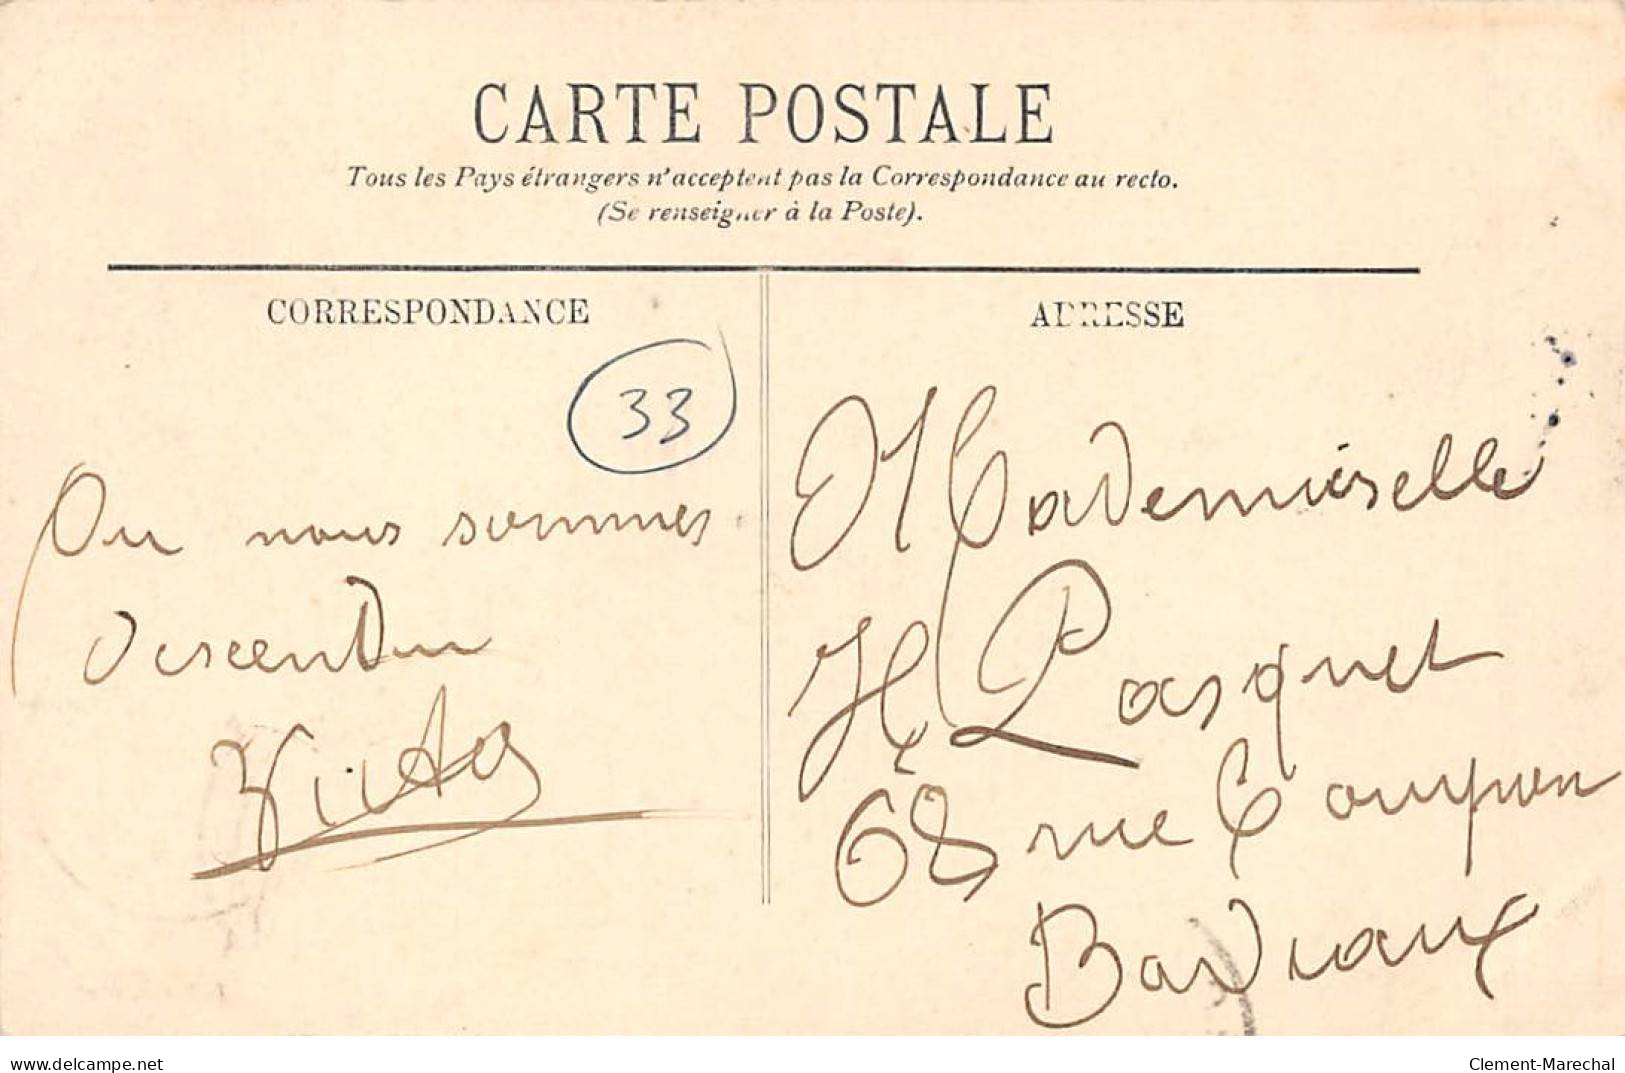 CARTE POSTALE
Tous les Pays étrangers n'acceptent pas la Correspondance au recto.
(Se renseigner à la Poste).
CORRESPONDANCE
ADRESSE
33
Ou nous sommes
descendu
Victor
Mademoiselle
H Pasquet
68 rue
Bordeaux
www.delcampe.net
Clement-Marechal